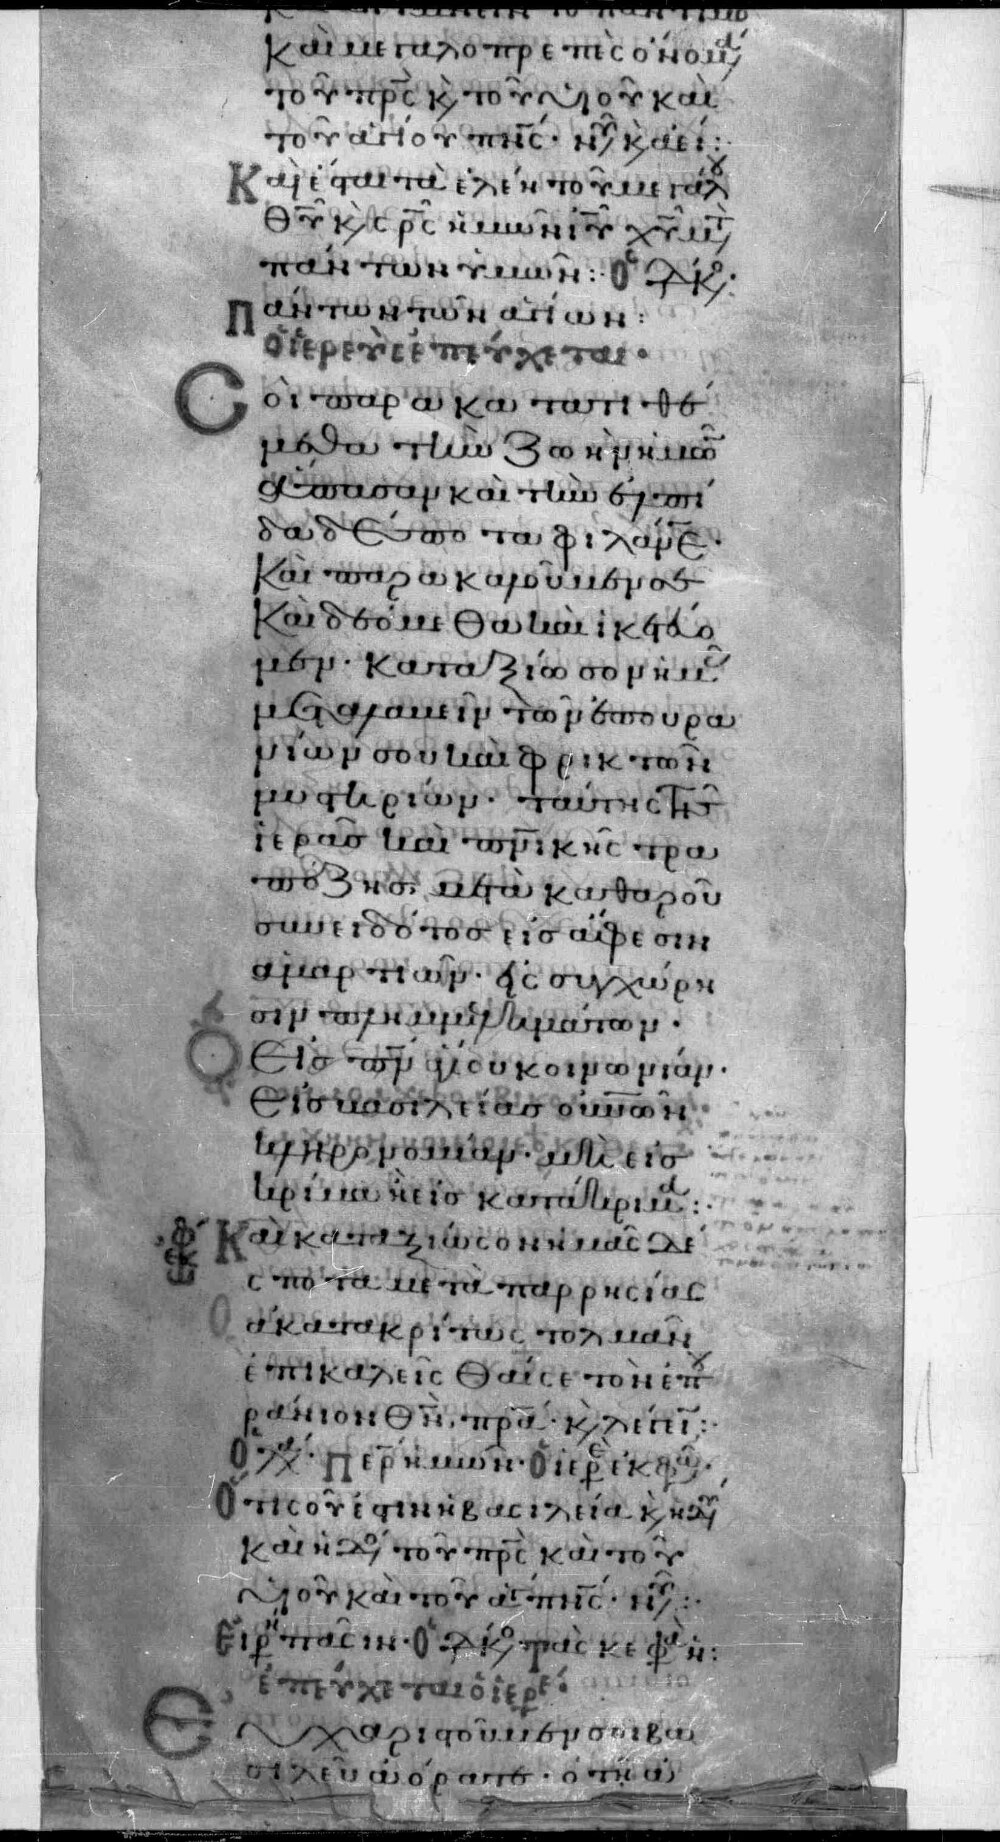 καὶ μεγαλοπρεπὲς ὄνομ
τοῦ πρς κ τοῦ υἱοῦ καὶ
τοῦ ἁγίου πνς· νῦ κ ἀεί:
Καὶ ἔσται τὰ ἐλέη τοῦ μεγάλ
θυ κ σρς ἡμῶν ιυ χυ μτ
πάντων ὑμῶν: Ὁ δκο:
Πάντων τῶν ἁγίων:
ὁ ἱερεὺς ἐπεύχεται·
Σοὶ παρακατατιθέ
μεθα τὴν ζωὴν ἡμῶ
ἅπασαν καὶ τὴν ἐλπί
δα δέσποτα φιλάνε·
Καὶ παρακαλοῦμέν σε
Καὶ δεόμεθα καὶ ἱκετεύο
μεν· καταξίωσον ἡμ
μεταλαβεῖν τῶν ἐπουρα
νίων σου καὶ φρικτῶν
μυστηρίων· ταύτης τῆς
ἱερᾶς καὶ πνικῆς τρα
πέζης· μετὰ καθαροῦ
συνειδότος εἰς ἄφεσιν
ἁμαρτιῶν· εἰς συγχώρη
σιν πλημμελημάτων·
Εἰς πν ἁγίου κοινωνίαν·
Εἰς βασιλείας οὐνῶν
κληρονομίαν· μὴ εἰς
κρίμα ἢ εἰς κατάκριμ:
Καὶ καταξίωσον ἡμᾶς δέ
σποτα μετὰ παρρησίας
ἀκατακρίτως τολμᾶν
ἐπικαλεῖσθαί σε τὸν ἐπου
ράνιον θν πρα· κ λέγει:
Ὁ λα· Περ ἡμῶν· Ὁ ἱερε ἐκφω·
Ὅτι σοῦ ἐστιν ἡ βασιλεία κ ἡ δυ
καὶ ἡ δο τοῦ πρς καὶ τοῦ
υἱοῦ καὶ τοῦ ἁγ πνς· νῦ:
Εἰρη πᾶσιν· Ὁ δκο· Τὰς κεφαλ ἡ:
ἐπεύχεται ὁ ἱερε·
Εὐχαριστοῦμέν σοι βα
σιλεῦ ἀόρατε· ὁ τῇ ἀ